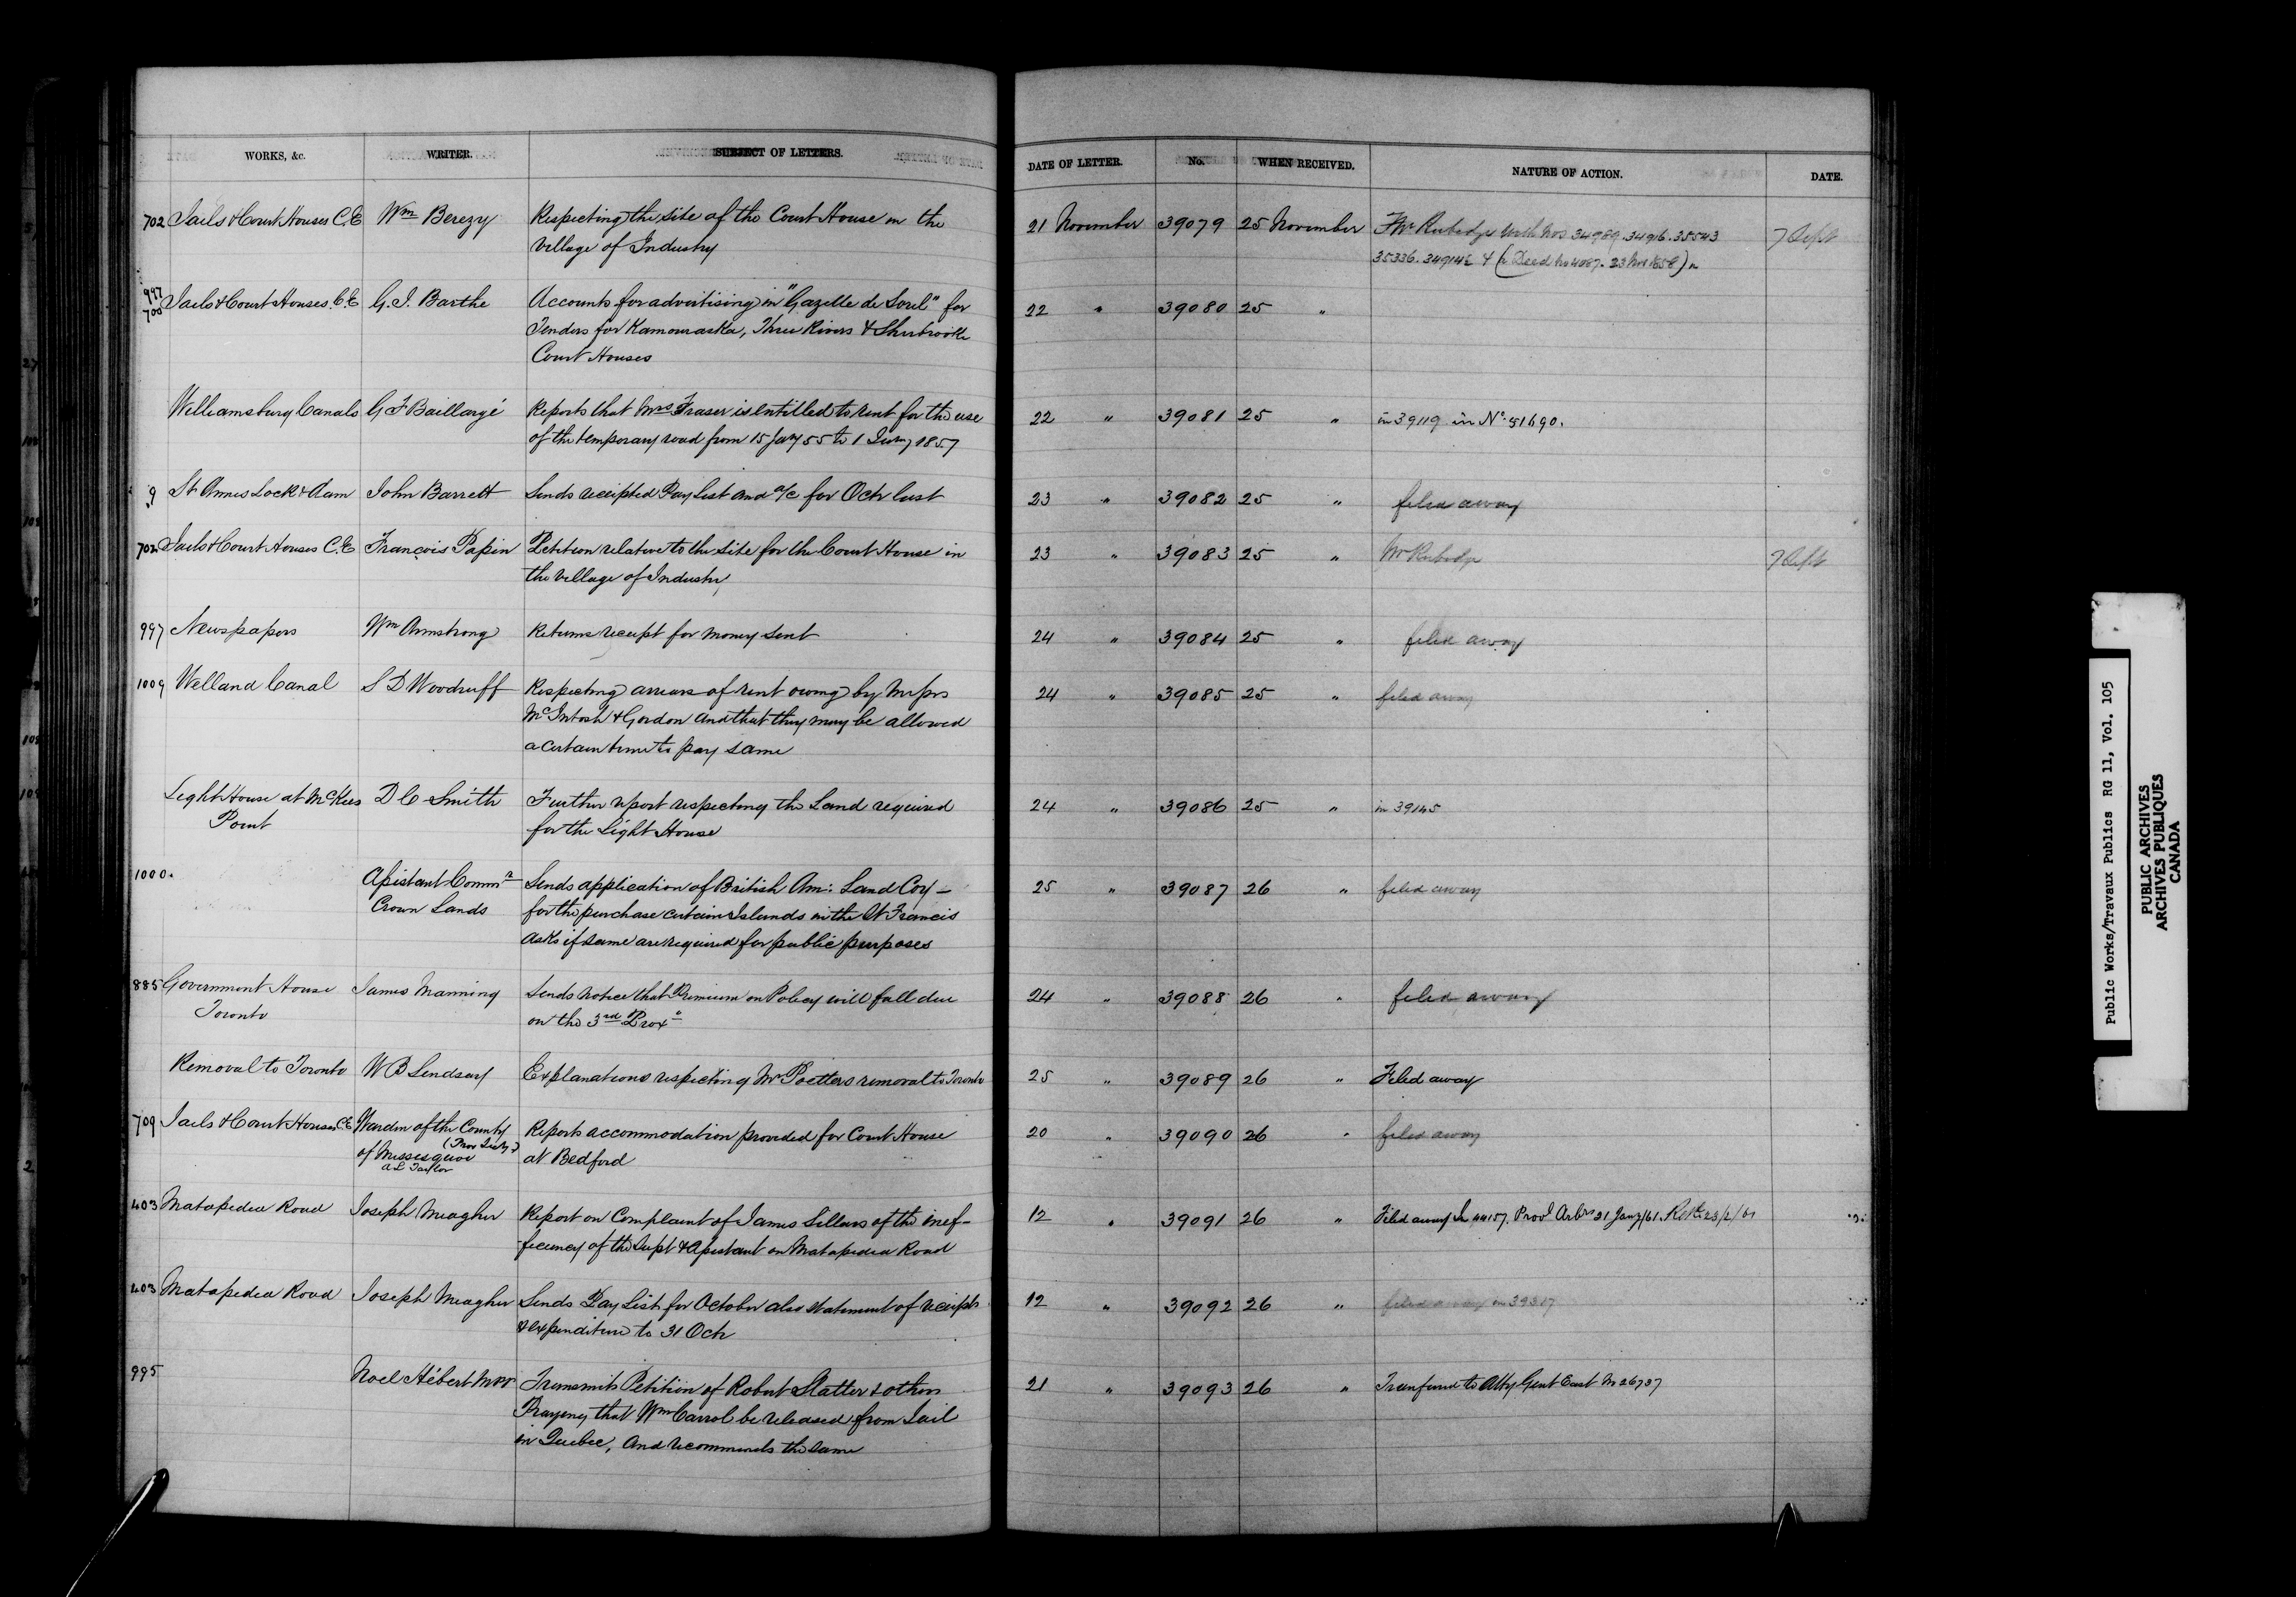 WORKS, &c. WRITER. SUBJECT OF LETTERS. DATE OF LETTER. No. WHEN RECEIVED. NATURE OF ACTION. DATE.
702 Jails & Court Houses C.E Wm Berezy Respecting the site of the Court House in the 21 November 39079 25 November 7 Sept
Village of Industry
997
700 Jails & Court Houses C.E G. I. Barthe Accounts for advertising in "Gazette de Sorel" for 22 " 39080 25 "
Tenders for Kamouraska, Three Rivers & Sherbrooke
Court Houses
Williamsburg Canals G F Baillargé Reports that Mrs Fraser is entitled to rent for the use 22 " 39081 25 " in 39119 in No 51690.
of the temporary road from 15 Jany 55 to 1 Jany 1857
9 St Annes Lock & Dam John Barrett Sends receipted Pay List and a/c for Octr last 23 " 39082 25 " filed away
702 Jails & Court Houses C.E François Papin Petition relative to the site for the Court House in 23 " 39083 25 " Mr Rubidge 7 Sept
the Village of Industry
997 Newspapers Wm Armstrong Returns receipt for money sent 24 " 39084 25 " filed away
1009 Welland Canal S D Woodruff Respecting arrears of rent owing by Messrs 24 " 39085 25 " filed away
McIntosh & Gordon and that they may be allowed
a certain time to pay same
Light House at McKees D C Smith Further report respecting the Land required 24 " 39086 25 " in 39145
Point for the Light House
1000. Assistant Commr Sends application of British Am: Land Coy – 25 " 39087 26 " filed away
Crown Lands for the purchase certain Islands in the St Francis
asks if same are required for public purposes
885 Government House James Manning Sends notice that Premium on Policy will fall due 24 " 39088 26 " filed away
Toronto on the 3rd Proxo
Removal to Toronto W B Lindsay Explanations respecting Mr Poetters removal to Toronto 25 " 39089 26 " Filed away
709 Jails & Court Houses C.E Warden of the County Reports accommodation provided for Court House 20 " 39090 26 " filed away
(Prov Secy)
of Missisquoi at Bedford
A L Taylor
403 Matapedia Road Joseph Meagher Report on Complaint of James Sillars of the inef- 12 " 39091 26 " Filed away In 44157. Provl Arbrs 31 Jany/61.
ficiency of the Supt & Assistant on Matapedia Road
403 Matapedia Road Joseph Meagher Sends Pay List for October also statement of receipts 12 " 39092 26 " filed away in 39317
& expenditure to 31 Octr
995 Noel Hébert MPP Transmits Petition of Robert Slatter & others 21 " 39093 26 " Transferred to Atty Genl East No 26737
Praying that Wm Carrol be released from Jail
in Quebec, and recommends the same
Public Works/Travaux Publics RG 11, Vol. 105
PUBLIC ARCHIVES
ARCHIVES PUBLIQUES
CANADA